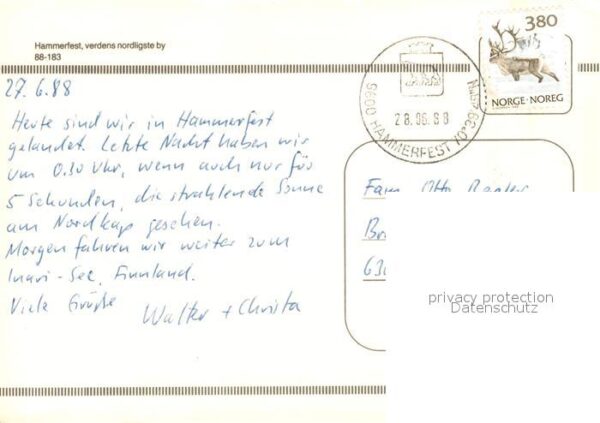 Hammerfest, verdens nordligste by
88-183
27.6.88
Heute sind wir in Hammerfest
gelandet. Letzte Nacht haben wir
um 0.30 Uhr, wenn auch nur für
5 Sekunden, die strahlende Sonne
am Nordkap gesehen.
Morgen fahren wir weiter zum
Inari-See, Finnland.
Viele Grüße
Walter + Christa
9600 HAMMERFEST 70°39'
380
NORGE·NOREG
Fam. Otto
privacy protection
Datenschutz